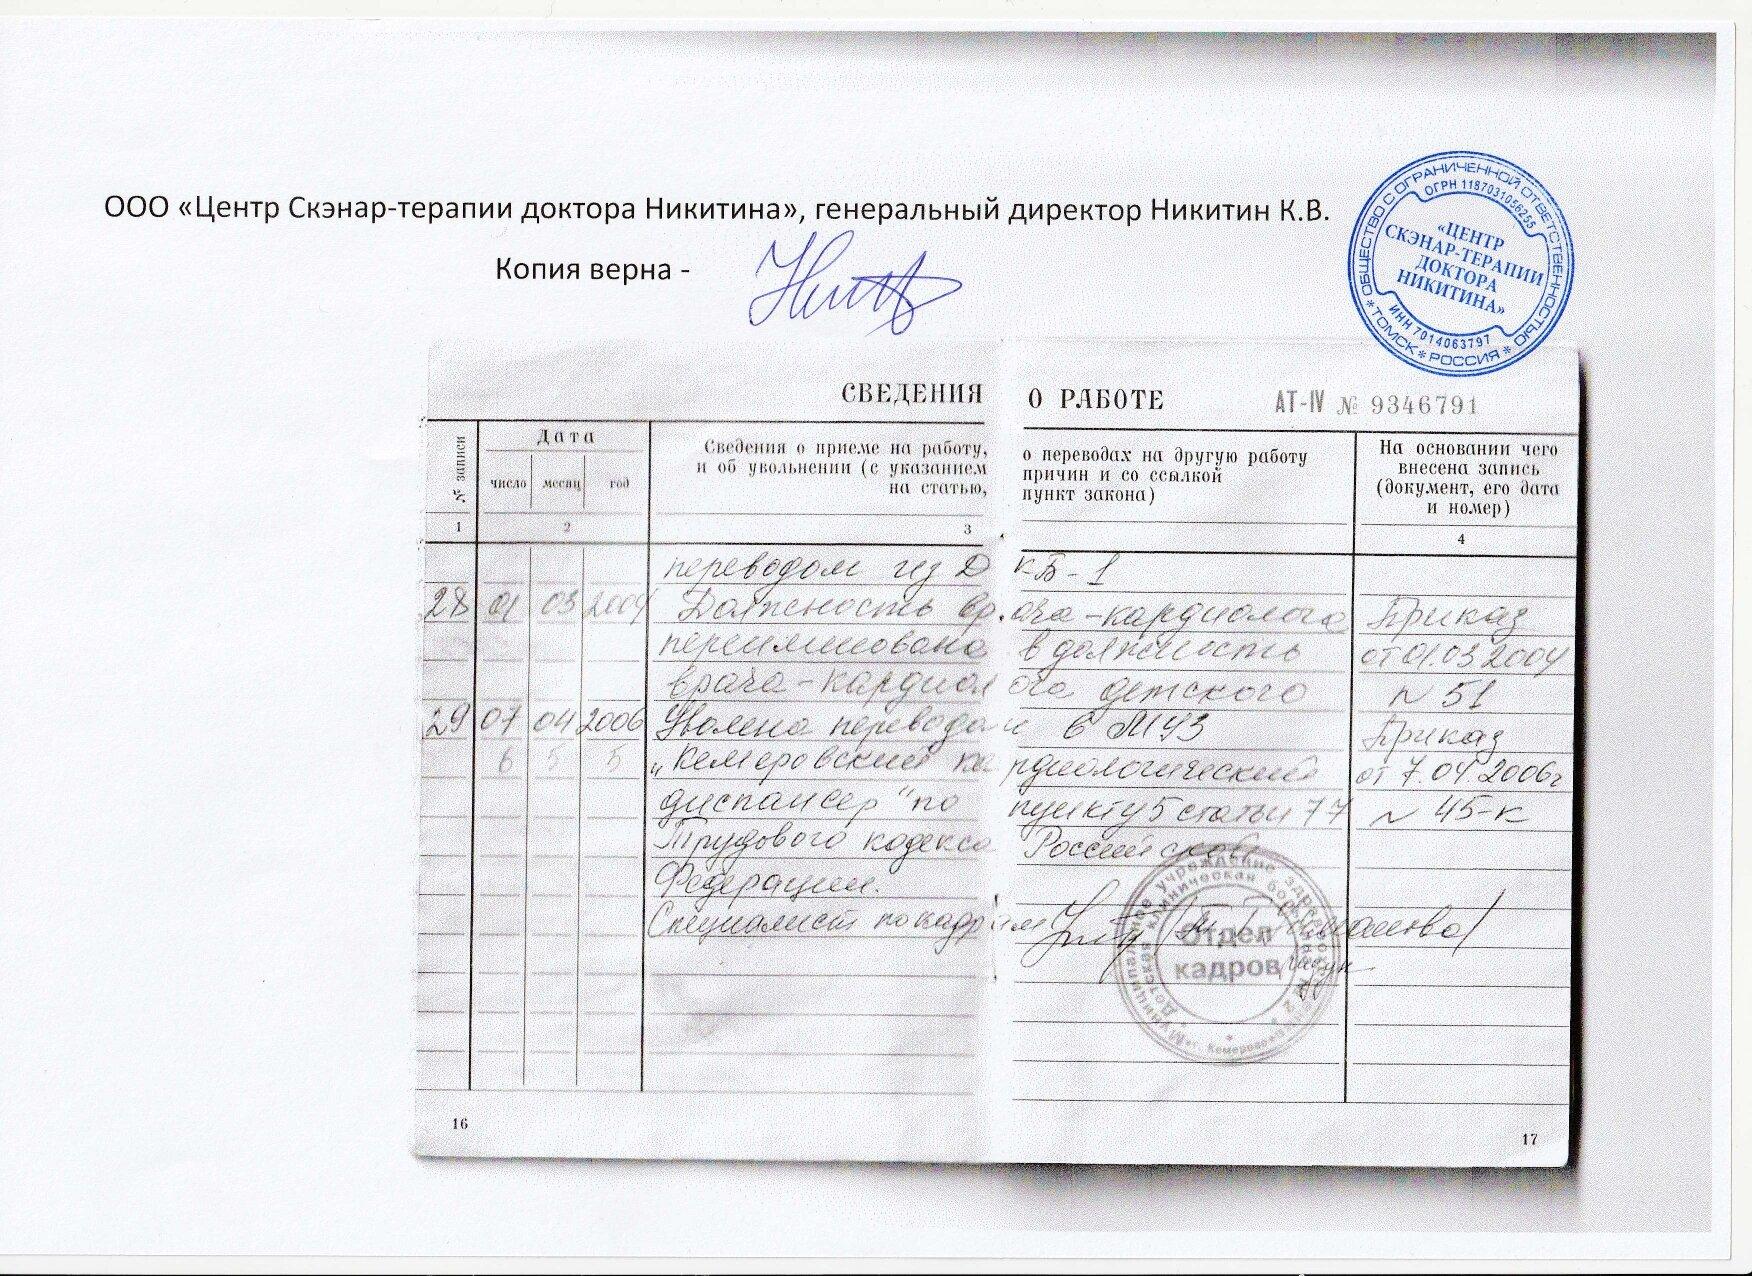 ООО «Центр Скэнар-терапии доктора Никитина», генеральный директор Никитин К.В.
Копия верна -
ОБЩЕСТВО С ОГРАНИЧЕННОЙ ОТВЕТСТВЕННОСТЬЮ
* ТОМСК * РОССИЯ *
ОГРН 1187031056255
«ЦЕНТР
СКЭНАР-ТЕРАПИИ
ДОКТОРА
НИКИТИНА»
ИНН 7014063797
СВЕДЕНИЯ О РАБОТЕ AT-IV № 9346791
№ записи
Дата
число месяц год
Сведения о приеме на работу, о переводах на другую работу
и об увольнении (с указанием причин и со ссылкой
на статью, пункт закона)
На основании чего
внесена запись
(документ, его дата
и номер)
1 2 3 4
переводом из ДКБ-1
28 01 03 2004 Должность врача-кардиолога Приказ
переименована в должность от 01.03.2004
врача-кардиолога детского № 51
29 07 04 2006 Уволена переводом в МУЗ Приказ
„Кемеровский кардиологический от 7.04.2006г
диспансер" по пункту 5 статьи 77 № 45-к
Трудового кодекса Российской
Федерации.
Специалист по кадрам
Отдел
кадров
16 17